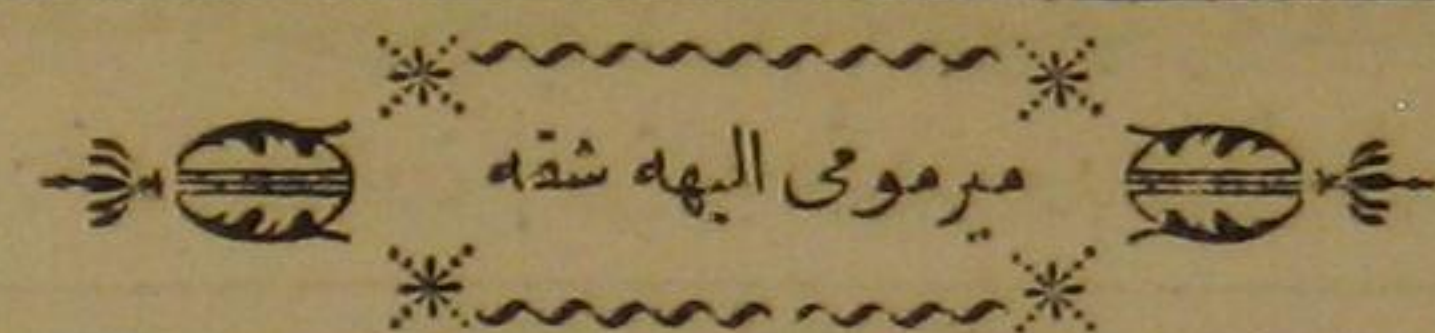 میر مومی الیهه شقه